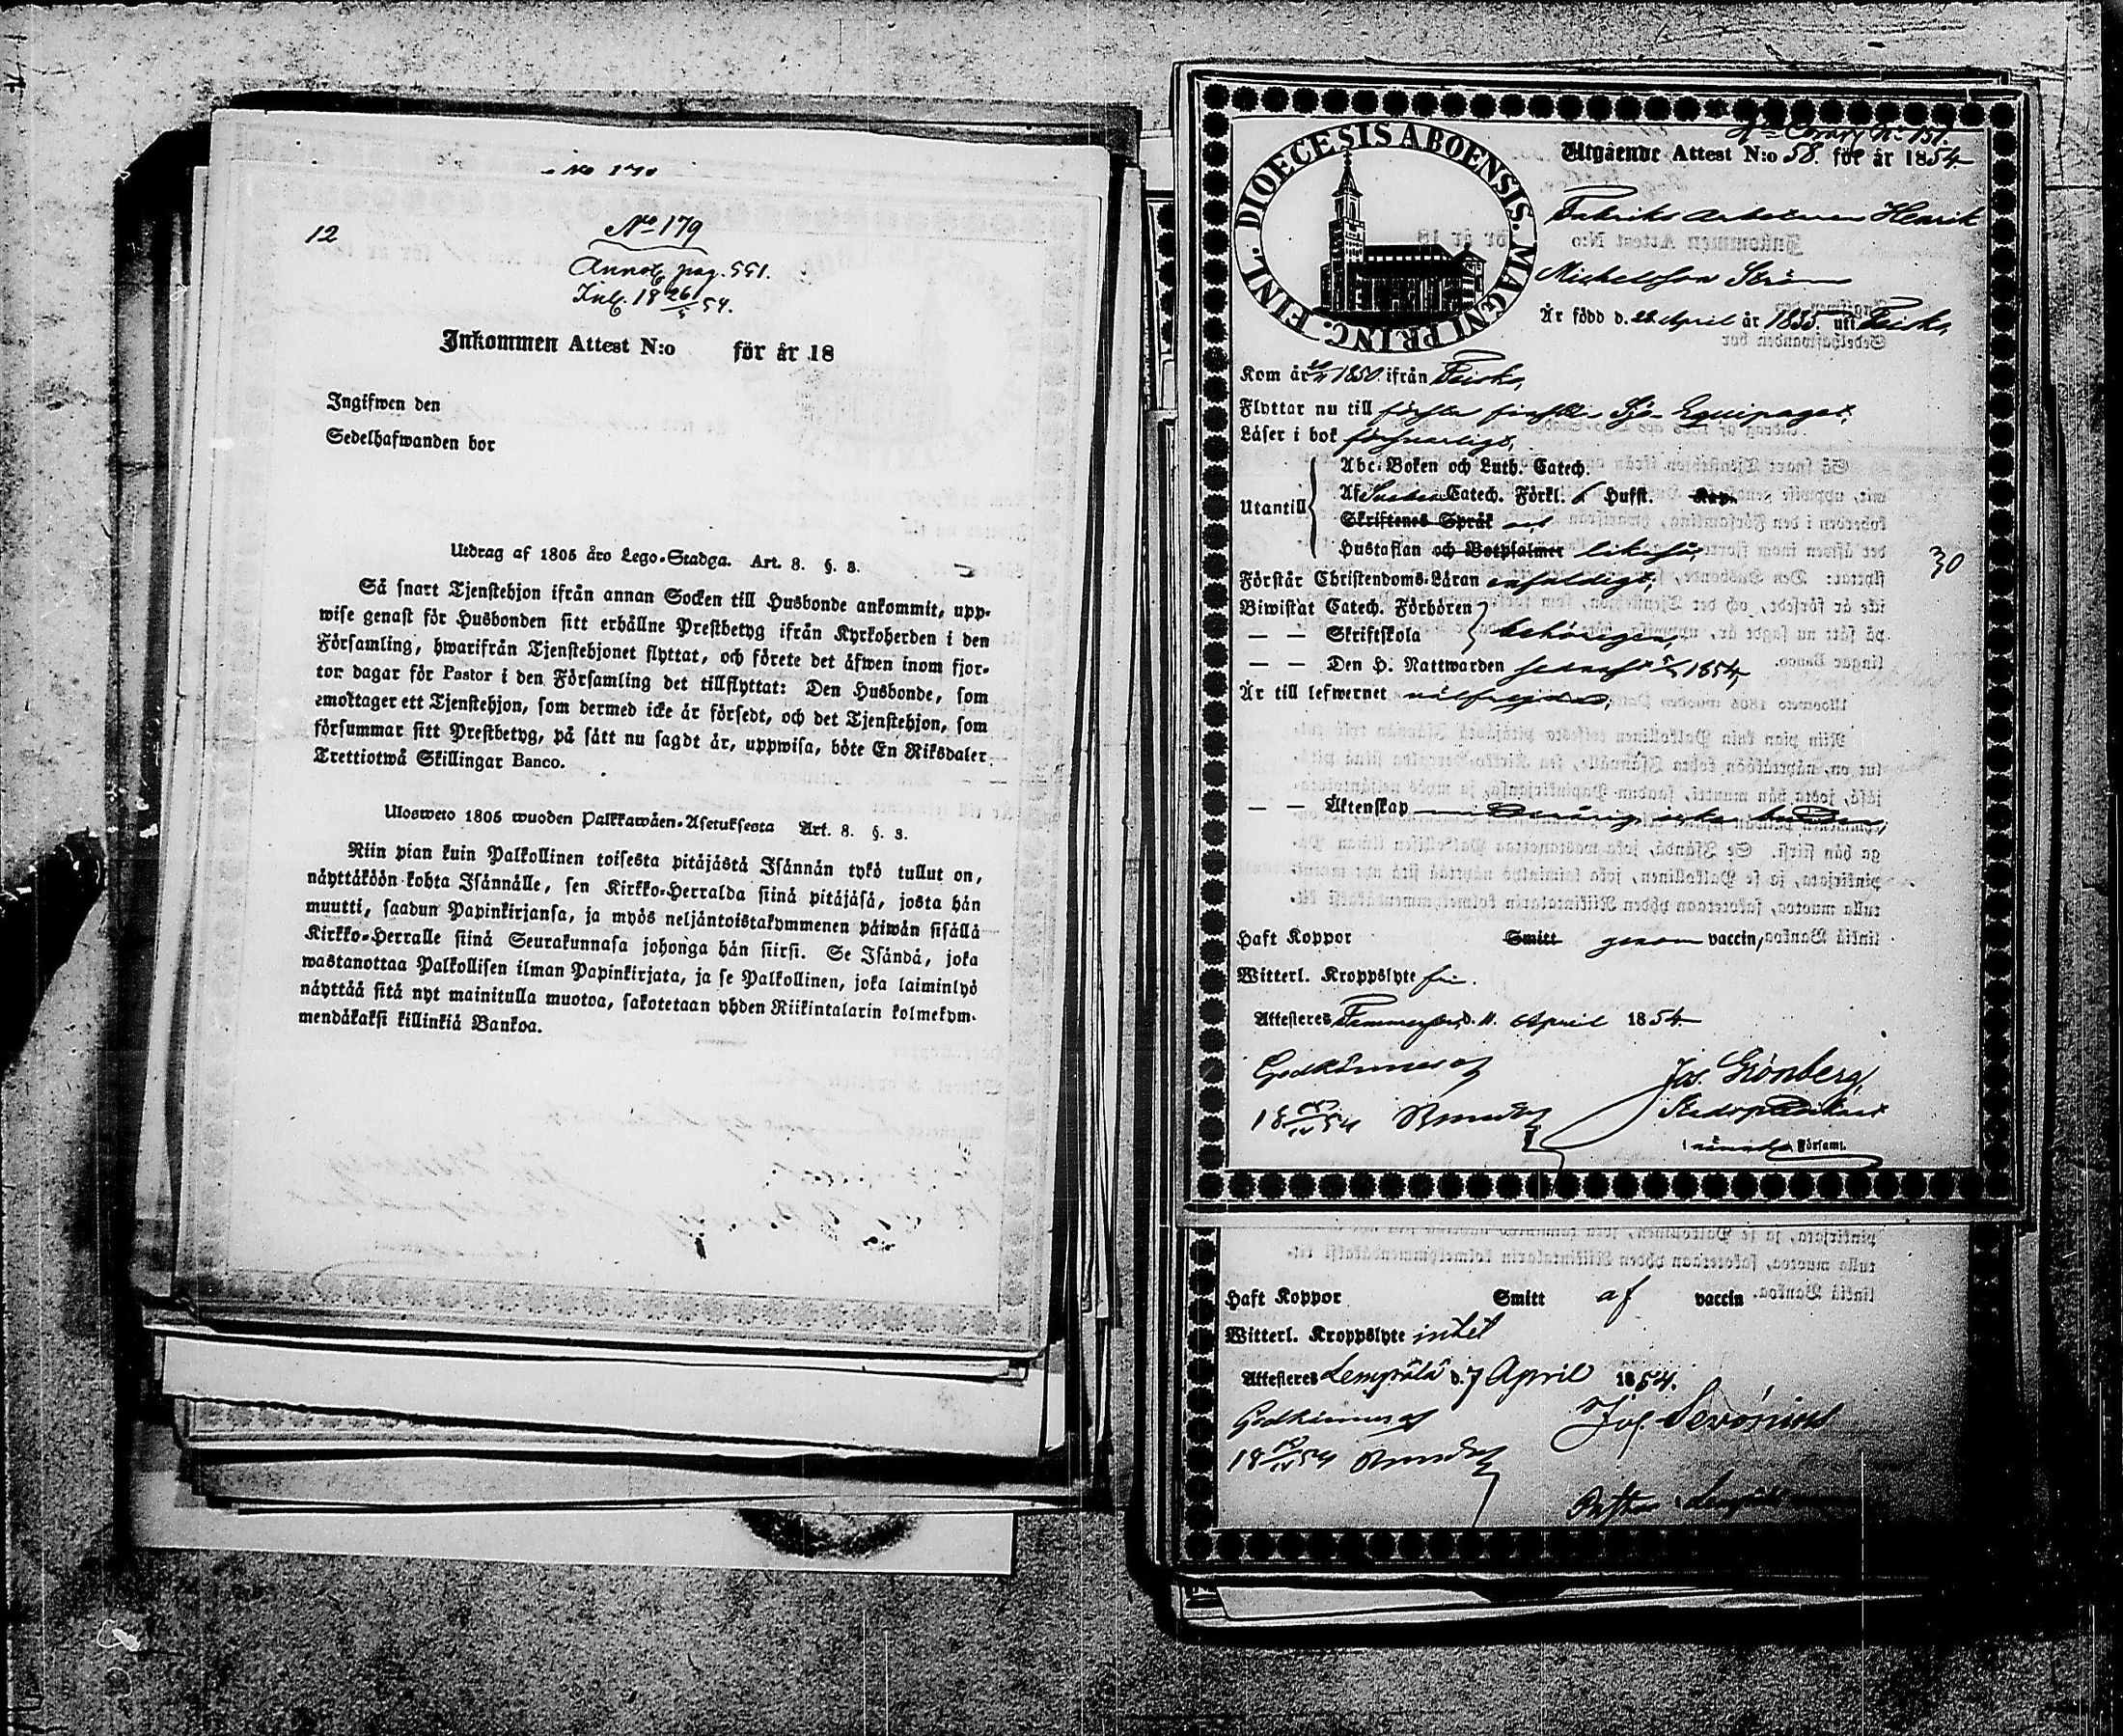 12
No 179
Annot. pag. 551.
Inkommen Attest N:o för år 18
Ingifwen den
Sedelhafwanden bor
Utdrag af 1805 års Lego-Stadga. Art. 8. §. 3.
Så snart Tjenstehjon ifrån annan Socken till Husbonde ankommit, upp-
wise genast för Husbonden sitt erhållne Prestbetyg ifrån Kyrkoherden i den
Församling, hwarifrån Tjenstehjonet flyttat, och förete det äfwen inom fjor-
tor dagar för Pastor i den Församling det tillflyttat: Den Husbonde, som
emottager ett Tjenstehjon, som dermed icke är försedt, och det Tjenstehjon, som
försummar sitt Prestbetyg, på sätt nu sagdt är, uppwisa, böte En Riksdaler
Trettiotwå Skillingar Banco.
Ulosweto 1805 wuoden Palkkawäen-Asetuksesta Art. 8. §. 3.
Niin pian kuin Palkollinen toisesta pitäjästä Isännän tykö tullut on,
näyttäköön kohta Isännälle, sen Kirkko-Herralda siinä pitäjäsä, josta hän
muutti, saadun Papinkirjansa, ja myös neljäntoistakymmenen päiwän sisällä
Kirkko-Herralle siinä Seurakunnasa johonga hän siirsi. Se Isändä, joka
wastanottaa Palkollisen ilman Papinkirjata, ja se Palkollinen, joka laiminlyö
näyttää sitä nyt mainitulla muotoa, sakotetaan yhden Riikintalarin kolmekym-
mendäkaksi killinkiä Bankoa.
DIOECESIS ABOENSIS. MAGNI PRINC. FINL.
Utgående Attest N:o 58. för år 1854
Fabriks arbetaren Henrik
Michelsson Ström
Är född d. 22 April år 1835. uti
Kom år 1850. ifrån
Flyttar nu till första finska Sjö-Equipaget.
Läser i bok försvarligt,
Utantill
Abc-Boken och Luth. Catech.
Af Catech. Förkl. Hufst. Kap.
Skriftenes Språk
Hustaflan och Botpsalmer likaså,
30
Förstår Christendoms-Läran enfaldigt,
Biwistat Catech. Förhören
— — Skriftskola behörigen,
— — Den H. Nattwarden senast 1854,
Är till lefwernet välfrejdad,
— — Äktenskap
Haft Koppor Smitt genom vaccin,
Witterl. Kroppslyte fri.
Attesteres Tammerfors d. 11. April 1854
Godkännes af Jos. Grönberg,
18 54
i nämnda Församl.
Haft Koppor Smitt af vaccin
Witterl. Kroppslyte intet
Attesteres Lempälä d. 7 April 1854.
Godkännes af
18 54